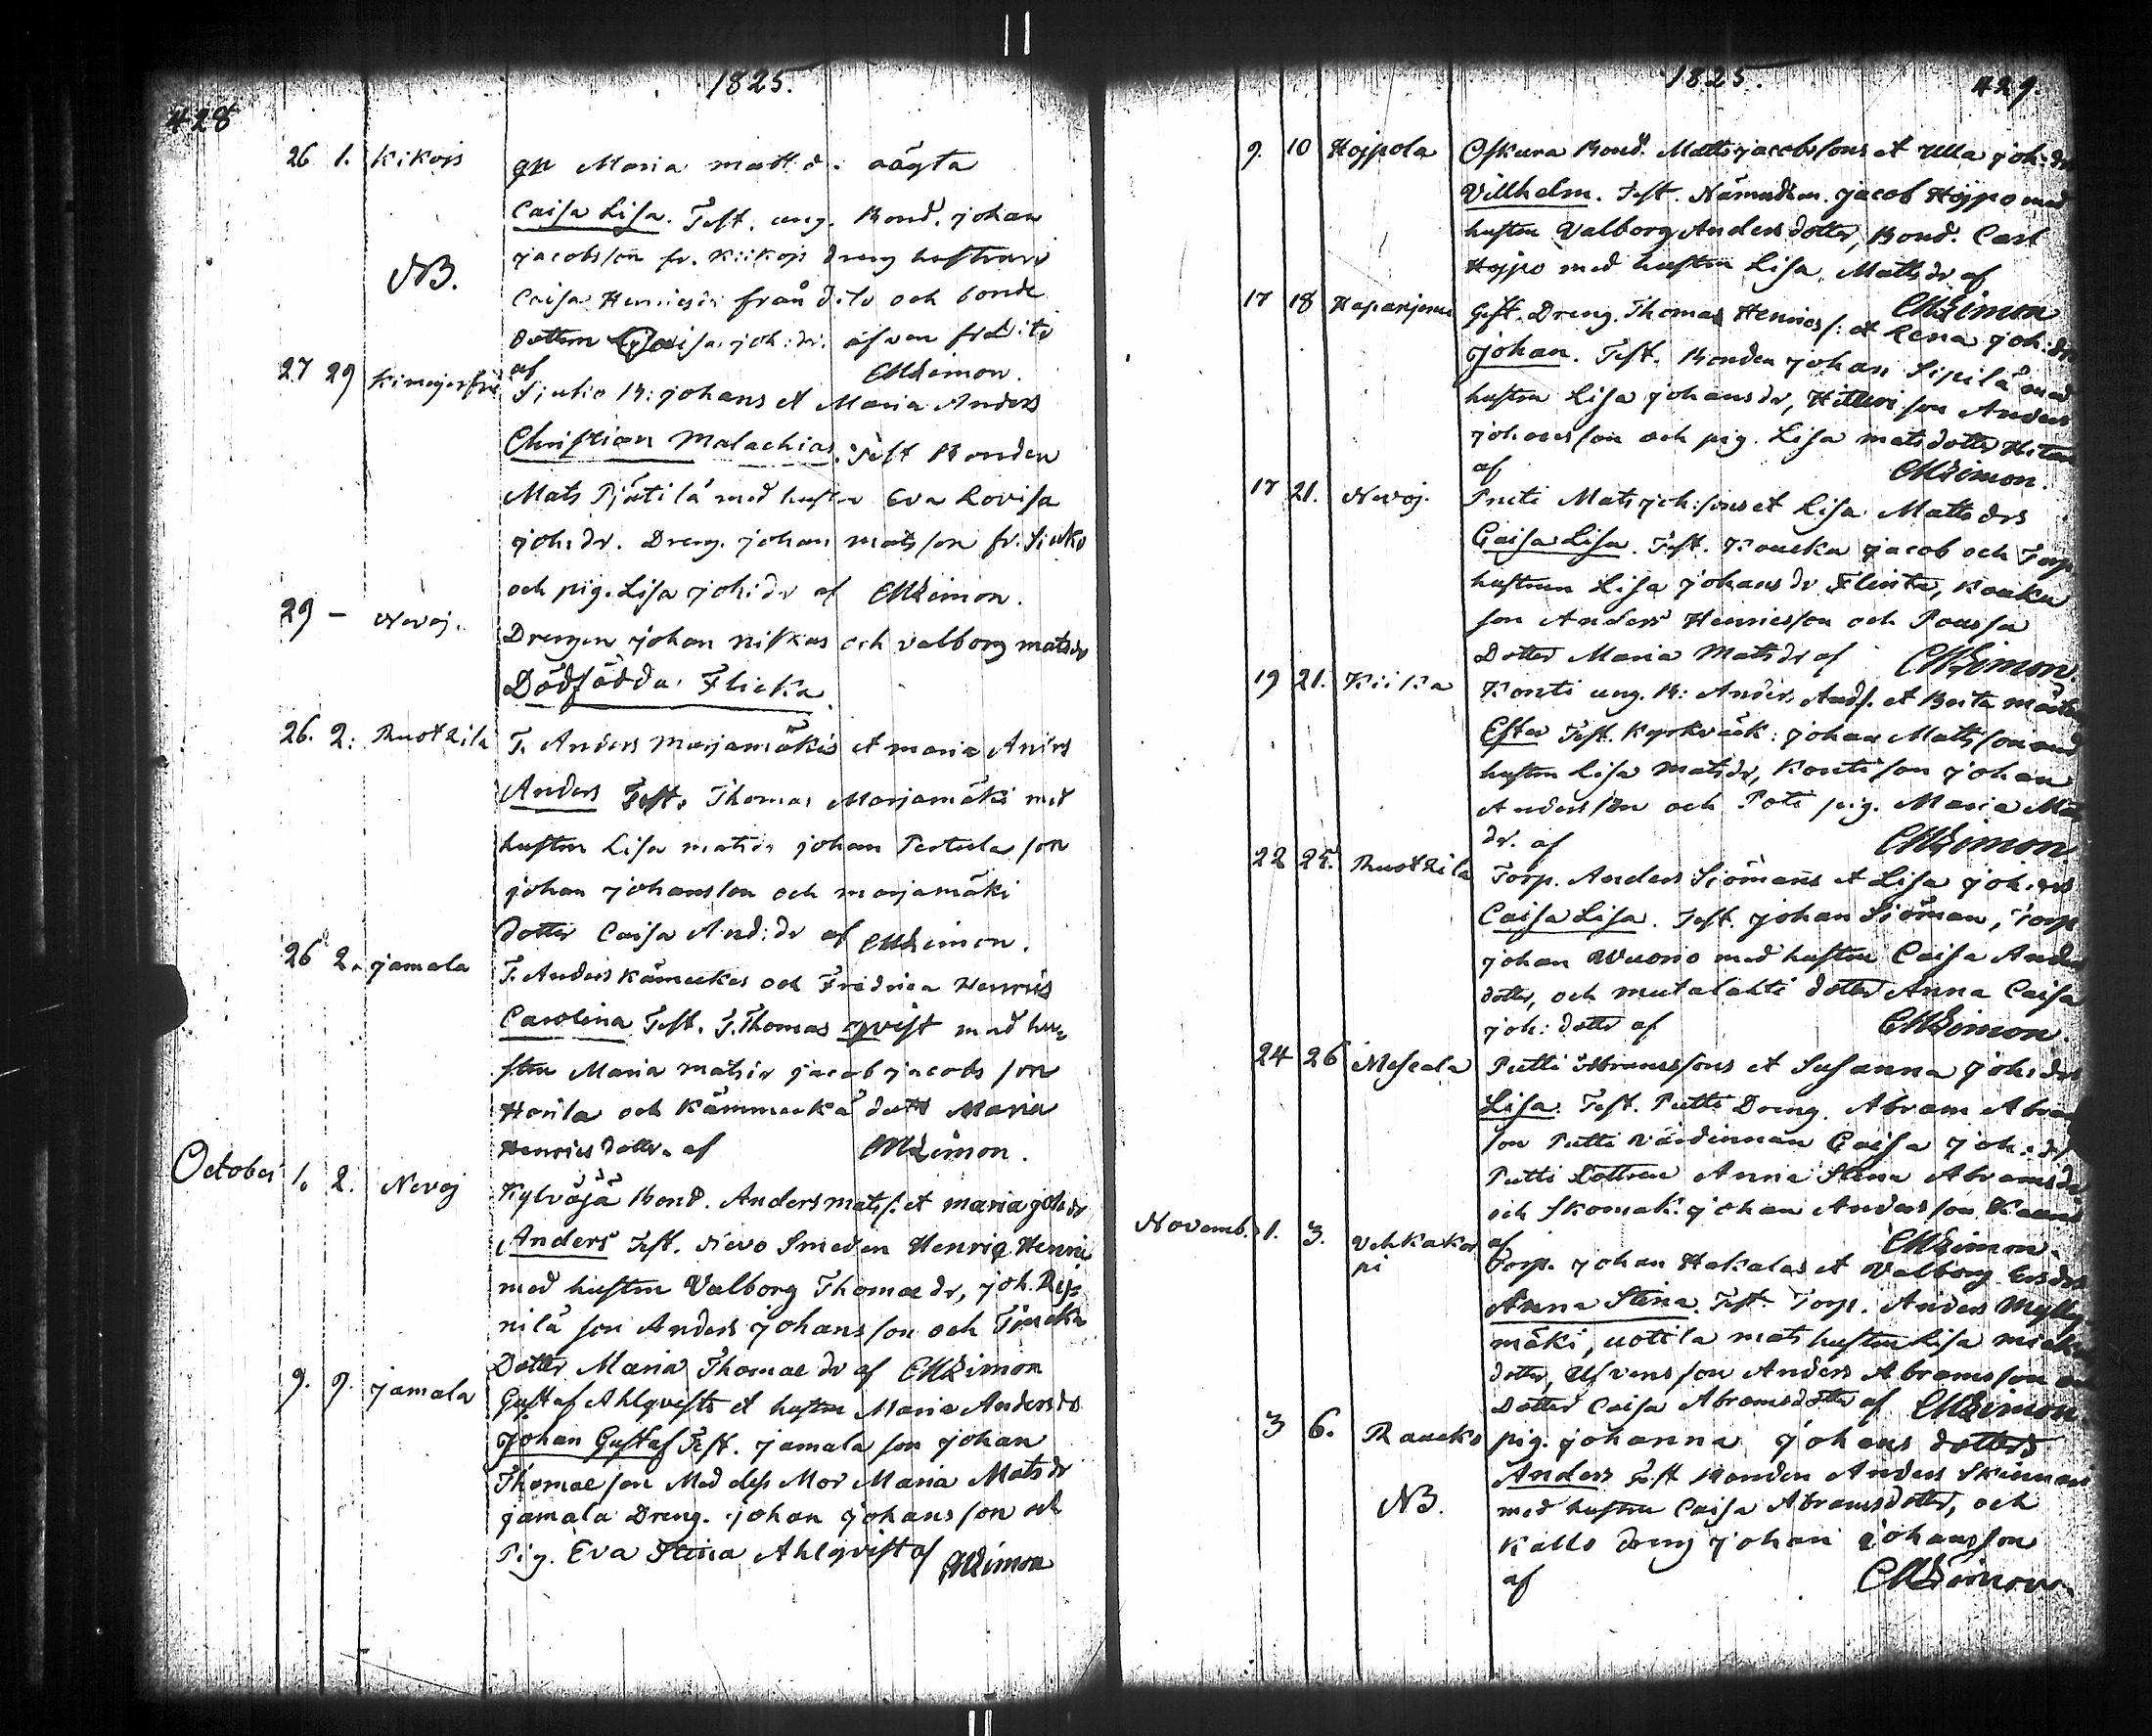 1825.
428
26 1. Kikois qp Maria matt.d. oägta
Caisa Lisa. Test. ung. Bond. johan
jacobsson fr. Kiikois dreng hustrun
NB.
Caisa Henricsdr från dito och bonde
dottern Caisa joh:dr. äfven fr dito
af CMLimon.
27 29 Sjutio B: johans et Maria Anders
Christian Malachias. Test Bonden
Mats Pjätilä med hustru Eva Lovisa
joh:dr. Dreng. johan mats son fr. Siuko
och pig. Lisa joh:dr af CMLimon.
29 – Nevoj. Drengen johan Niskas och Valborg matsdr
Dödfödda Flicka.
26. 2: Ruotzila T. Anders Marjamäkis et maria Anders
Anders Test. Thomas Marjamäki med
hustru Lisa matsdr johan Pertula son
johan johansson och marjamäki
dotter Caisa And:dr af CMLimon.
26 2. jamala T. Anders Kämeckes och Fredrica Henrics
Carolina Test. T. Thomas qvist med hu-
stru Maria matsdr jacob jacobs son
Honla och Kämmeckä dott Maria
Henrics dotter af CMLimon.
October 1. 2. Nevoj Kylväjä Bond. Anders mats s. et maria joh dr
Anders Test. Nevo Smeden Henric Henric
med hustru Valborg Thomae dr, joh. Rep-
nilä son Anders johans son och
Dotter Maria Thomae dr af CMLimon
9. 9. jamala Gustaf Ahlqvists et hustru Maria Anders dr
Johan Gustaf Test. jamala son johan
Thomae son Med dess Mor Maria Mats dr
jamala Dreng. johan johans son och
Pig. Eva Stina Ahlqvist af CMLimon
1825.
429
9. 10 Hojpola Oskura Bond. Matts jacobssons et Ulla joh:dr
Villhelm. Test. Nämndem. jacob Hojpo med
hustru Valborg Anders dotter, Bond. Carl
Hojpo med hustru Lisa Matts dr af
CMLimon
17 18 Gift. Dreng. Thomas Henrics s: et Lena joh:dr
johan. Test. Bonden johan Sipilä med
hustru Lisa johans dr, son Anders
johansson och pig. Lisa mats dotter
af CMLimon.
17 21. Nevoj. Priti Mats joh:sons et Lisa Matts drs
Caisa Lisa. Test. Koucka jacob och Torp
hustrun Lisa johans dr Flinta, Koucka
son Anders Henricsson och Poussa
Dotter Maria Mats dr af CMLimon.
19 21. Kiika Konti ung. B: Anders And s. et Beata
Ester Test. Kyrkväck: johan Mattsson med
hustru Lisa Mats dr, Konti son johan
Andersson och Poti pig. Maria
dr. af CMLimon
22 25. Ruotzila Torp. Anders Siömans et Lisa joh:drs
Caisa Lisa. Test. johan Siöman, Torp
johan Wuorio med hustru Caisa Anders
dotter, och Mutalahti dotter Anna Caisa
joh: dotter af CMLimon.
24 26 Mescala Putti Abramssons et Susanna joh:drs
Lisa. Test. Putti Dreng. Abram Abram
son Putti värdinnan Caisa joh:dr
Putti dottren Anna Stina Abrams dr
och skomak. johan Andersson
af CMLimon.
Novemb. 1. 3. Vehkakor
pi Torp. johan Hakalas et Valborg drs
Anna Stina. Test. Torp. Anders Mylly
mäki, uotila mats hustru Lisa
dotter, Ulfvens son Anders Abramsson
Dotter Caisa Abramsdotter af CMLimon
3 6. Raucko pig. johanna johans dotters
Anders Test Bonden Anders Skinnari
NB.
med hustru Caisa Abrams dotter, och
Kallo dreng johan johansson
af CMLimon.